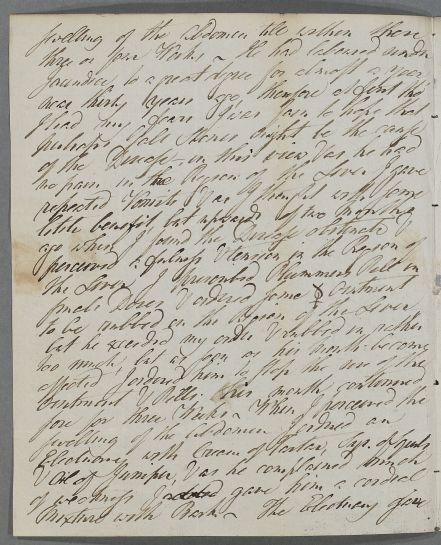 swelling of the Abdomen till within these
three or four Weeks - He had laboured under
Jaundice, to a great degree for almost a year
near thirty years ago, therefore at first tho'
I had my fears I was fain to hope that
perhaps Gall Stones might be the cause
of the Disease - in this view, & as he had
no pain in the Region of the Liver I gave
repeated Vomits & as I thought with some
little benefit, but upwards of two months
ago when I found the Disease obstinate &
perceived a fulness & tension in the Region of
the Liver I prescribed Plummers Pill in
small Doses & ordered some ☿ Ointment
to be rubbed on the Region of the Liver
but he exceeded my orders & rubbed in rather
too much, but as soon as his mouth became
affected I ordered him to stop the use of the
Ointment & Pills. His mouth continued
sore for three Weeks - When I perceived the
swelling of the Abdomen I ordered an
Electuary with Cream of Tartar, Sap. &
Oil of Juniper, & as he complained much
of weakness I gave him a cordial
Mixture with Bark - The Electuary gave